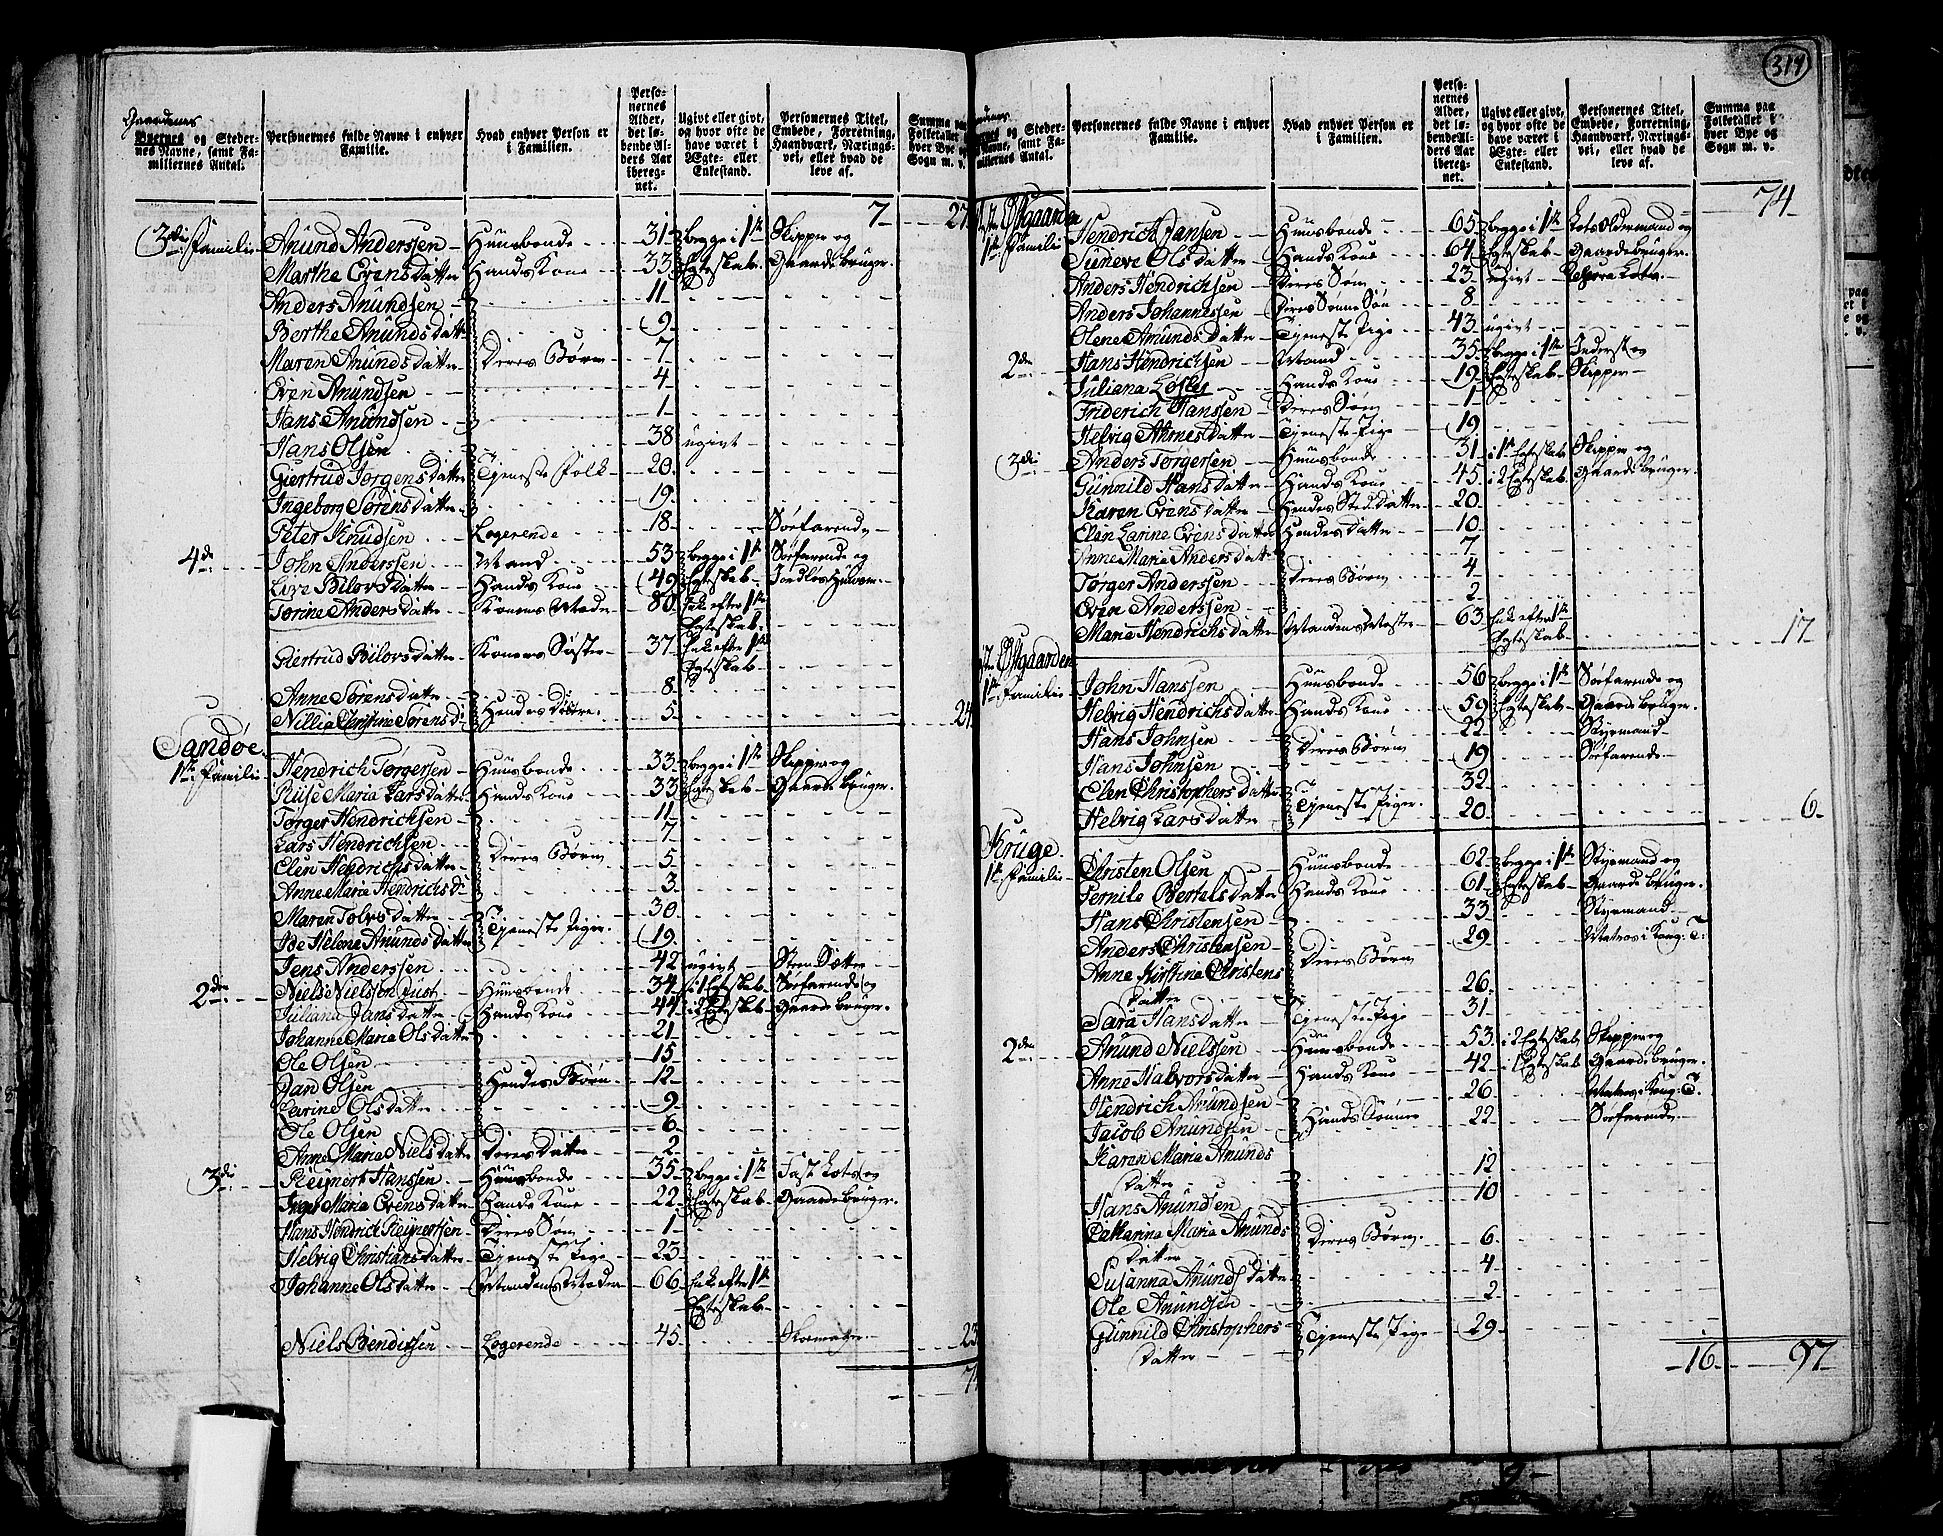 319
Gaardenes
Byernes og Steder-
nes Navne, samt Fa-
miliernes Antal.
Personernes fulde Navne i enhver
Familie.
Hvad enhver Person er
i Familien.
Perso-
nernes
Alder,
det lø-
bende Al-
ders Aar
ibereg-
net.
Ugivt eller givt,
og hvor ofte de
have været i
Ægte- eller
Enkestand.
Personernes Titel,
Embede, Forretning,
Haandværk, Nærings-
vei, eller hvad de
leve af.
Summa paa
Folketallet i
hver Bye og
Sogn m. v.
7 27
3die Familie Anund Anderssen Huusbonde 31 begge i 1te Skipper og
Marthe Evensdatter Hands Kone 33 Egteskab Gaardebruger
Anders Anundsen 11
Berthe Anundsdatter 9
Maren Anundsdatter Deres Børn 7
Even Anundsen 4
Hans Anundsen 1
Hans Olsen 38 ugivt
Giertrud Jørgensdatter Tjeneste Folk 20
Ingeborg Sørensdatter 19
Peter Knudsen Logerende 18 Søefarende
4de John Anderssen Mand 53 begge i 1te Søefarende og
Live Bilovsdatter Hands Kone 49 Egteskab Jordløs Huusm.
Torine Andersdatter Konens Moder 80 Enke efter 1te
Egteskab
Giertrud Bilovsdatter Konens Søster 37 Enke efter 1te
Egteskab
Anne Sørensdatter 8
Nillia Christine Sørensd. Hendes Døttre 5 24
Sandøe
1te Familie Hendrich Torgersen Huusbonde 33 begge i 1te Skipper og
Ruse Maria Larsdatter Hands Kone 33 Egteskab Gaardebruger
Torger Hendrichsen 11
Lars Hendrichsen 7
Elen Hendrichsdatter Deres Børn 5
Anne Marie Hendrichsd. 3
Maren Tolvsdatter Tjeneste Piger 30
Ide Helene Anundsdatter 19
Jens Anderssen 42 ugivt Steen Sætter
2de Niels Nielssen Lust Huusbonde 34 i 1 Egteskab Søefarende og
Juliana Jansdatter Hands Kone 44 i 2 Egteskab Gaardebruger
Johanne Maria Olsdatter 21
Ole Olsen 15
Jan Olsen Hendes Børn 12
Larine Olsdatter 9
Ole Olsen 6
Anne Maria Nielsdatter Deres Datter 2
3die Reinert Hanssen Huusbonde 35 begge i 1te Fast Lots og
Inger Maria Evensdatter Hands Kone 22 Egteskab Gaardebruger
Hans Hendrich Reinertsen Deres Søn 1
Helvig Christiansdatter Tjeneste Pige 23
Johanne Olsdatter Mandens Moder 66 Enke efter 1te
Egteskab
Niels Bendixsen Logerende 45 23
7
Byernes og Steder-
nes Navne, samt Fa-
miliernes Antal.
Personernes fulde Navne i enhver
Familie.
Hvad enhver Person er
i Familien.
Perso-
nernes
Alder,
det lø-
bende Al-
ders Aar
ibereg-
net.
Ugivt eller givt,
og hvor ofte de
have været i
Ægte- eller
Enkestand.
Personernes Titel,
Embede, Forretning,
Haandværk, Nærings-
vei, eller hvad de
leve af.
Summa paa
Folketallet i
hver Bye og
Sogn m. v.
74
Østgaarden
1te Familie Hendrich Jansen Huusbonde 65 begge i 1te Lots Oldermand og
Suneve Olsdatter Hands Kone 64 Egteskab Gaardebruger
Anders Hendrichsen Deres Søn 23 ugivt Reserve Lots
Anders Johannessen Deres Sønne Søn 8
Olene Anundsdatter Tjeneste Pige 43 ugivt
2de Hans Hendrichsen Mand 35 begge i 1te Inderst og
Juliana Lofley Hands Kone 19 Egteskab Skipper
Friderich Hanssen Deres Søn 1
Helvig Aamesdatter Tjeneste Pige 19
3die Anders Torgersen Huusbonde 31 i 1te Egteskab Skipper og
Gunnild Hansdatter Hands Kone 45 i 2 Egteskab Gaardebruger
Karen Evensdatter Hendes Sted.datter 20
Elen Larine Evensdatter Hendes Datter 10
Anne Marie Andersdatter 7
Torger Anderssen Deres Børn 4
Even Anderssen 2
Marie Hendrichsdatter Mandens Moster 63 Enke efter 1te
Egteskab 17
Østgaarden
1te Familie John Hanssen Huusbonde 56 begge i 1te Søefarende og
Helvig Hendrichsdatter Hands Kone 59 Egteskab Gaardebruger
Hans Johnsen 22 Styrmand
Hans Johnsen Deres Børn 19 Søefarende
Elen Christophersdatter 32
Helvig Larsdatter Tjeneste Piger 20 6
Kruge
1te Familie Christen Olsen Huusbonde 62 begge i 1te Styrmand og
Pernile Bertelsdatter Hands Kone 61 Egteskab Gaardebruger
Hans Christensen 33 Styrmand
Anders Christensen 29 Matros i Kong. T.
Anne Kirstine Christens Deres Børn
datter 26
Sara Hansdatter Tjeneste Pige 31
2de Anund Nielssen Huusbonde 53 i 2 Egteskab Skipper og
Anne Halvorsdatter Hands Kone 42 i 1 Egteskab Gaardebruger
Hendrich Anundsen 26 Matros i Kong. T.
Jacob Anundsen Hands Sønner 22 Søefarende
Karen Maria Anunds
datter 12
Hans Anundsen 10
Catharina Maria Anunds Deres Børn 6
datter
Susanna Anundsdatter 4
Ole Anundsen 2
Gunnild Christophers Tjeneste Pige 29
datter 16 97